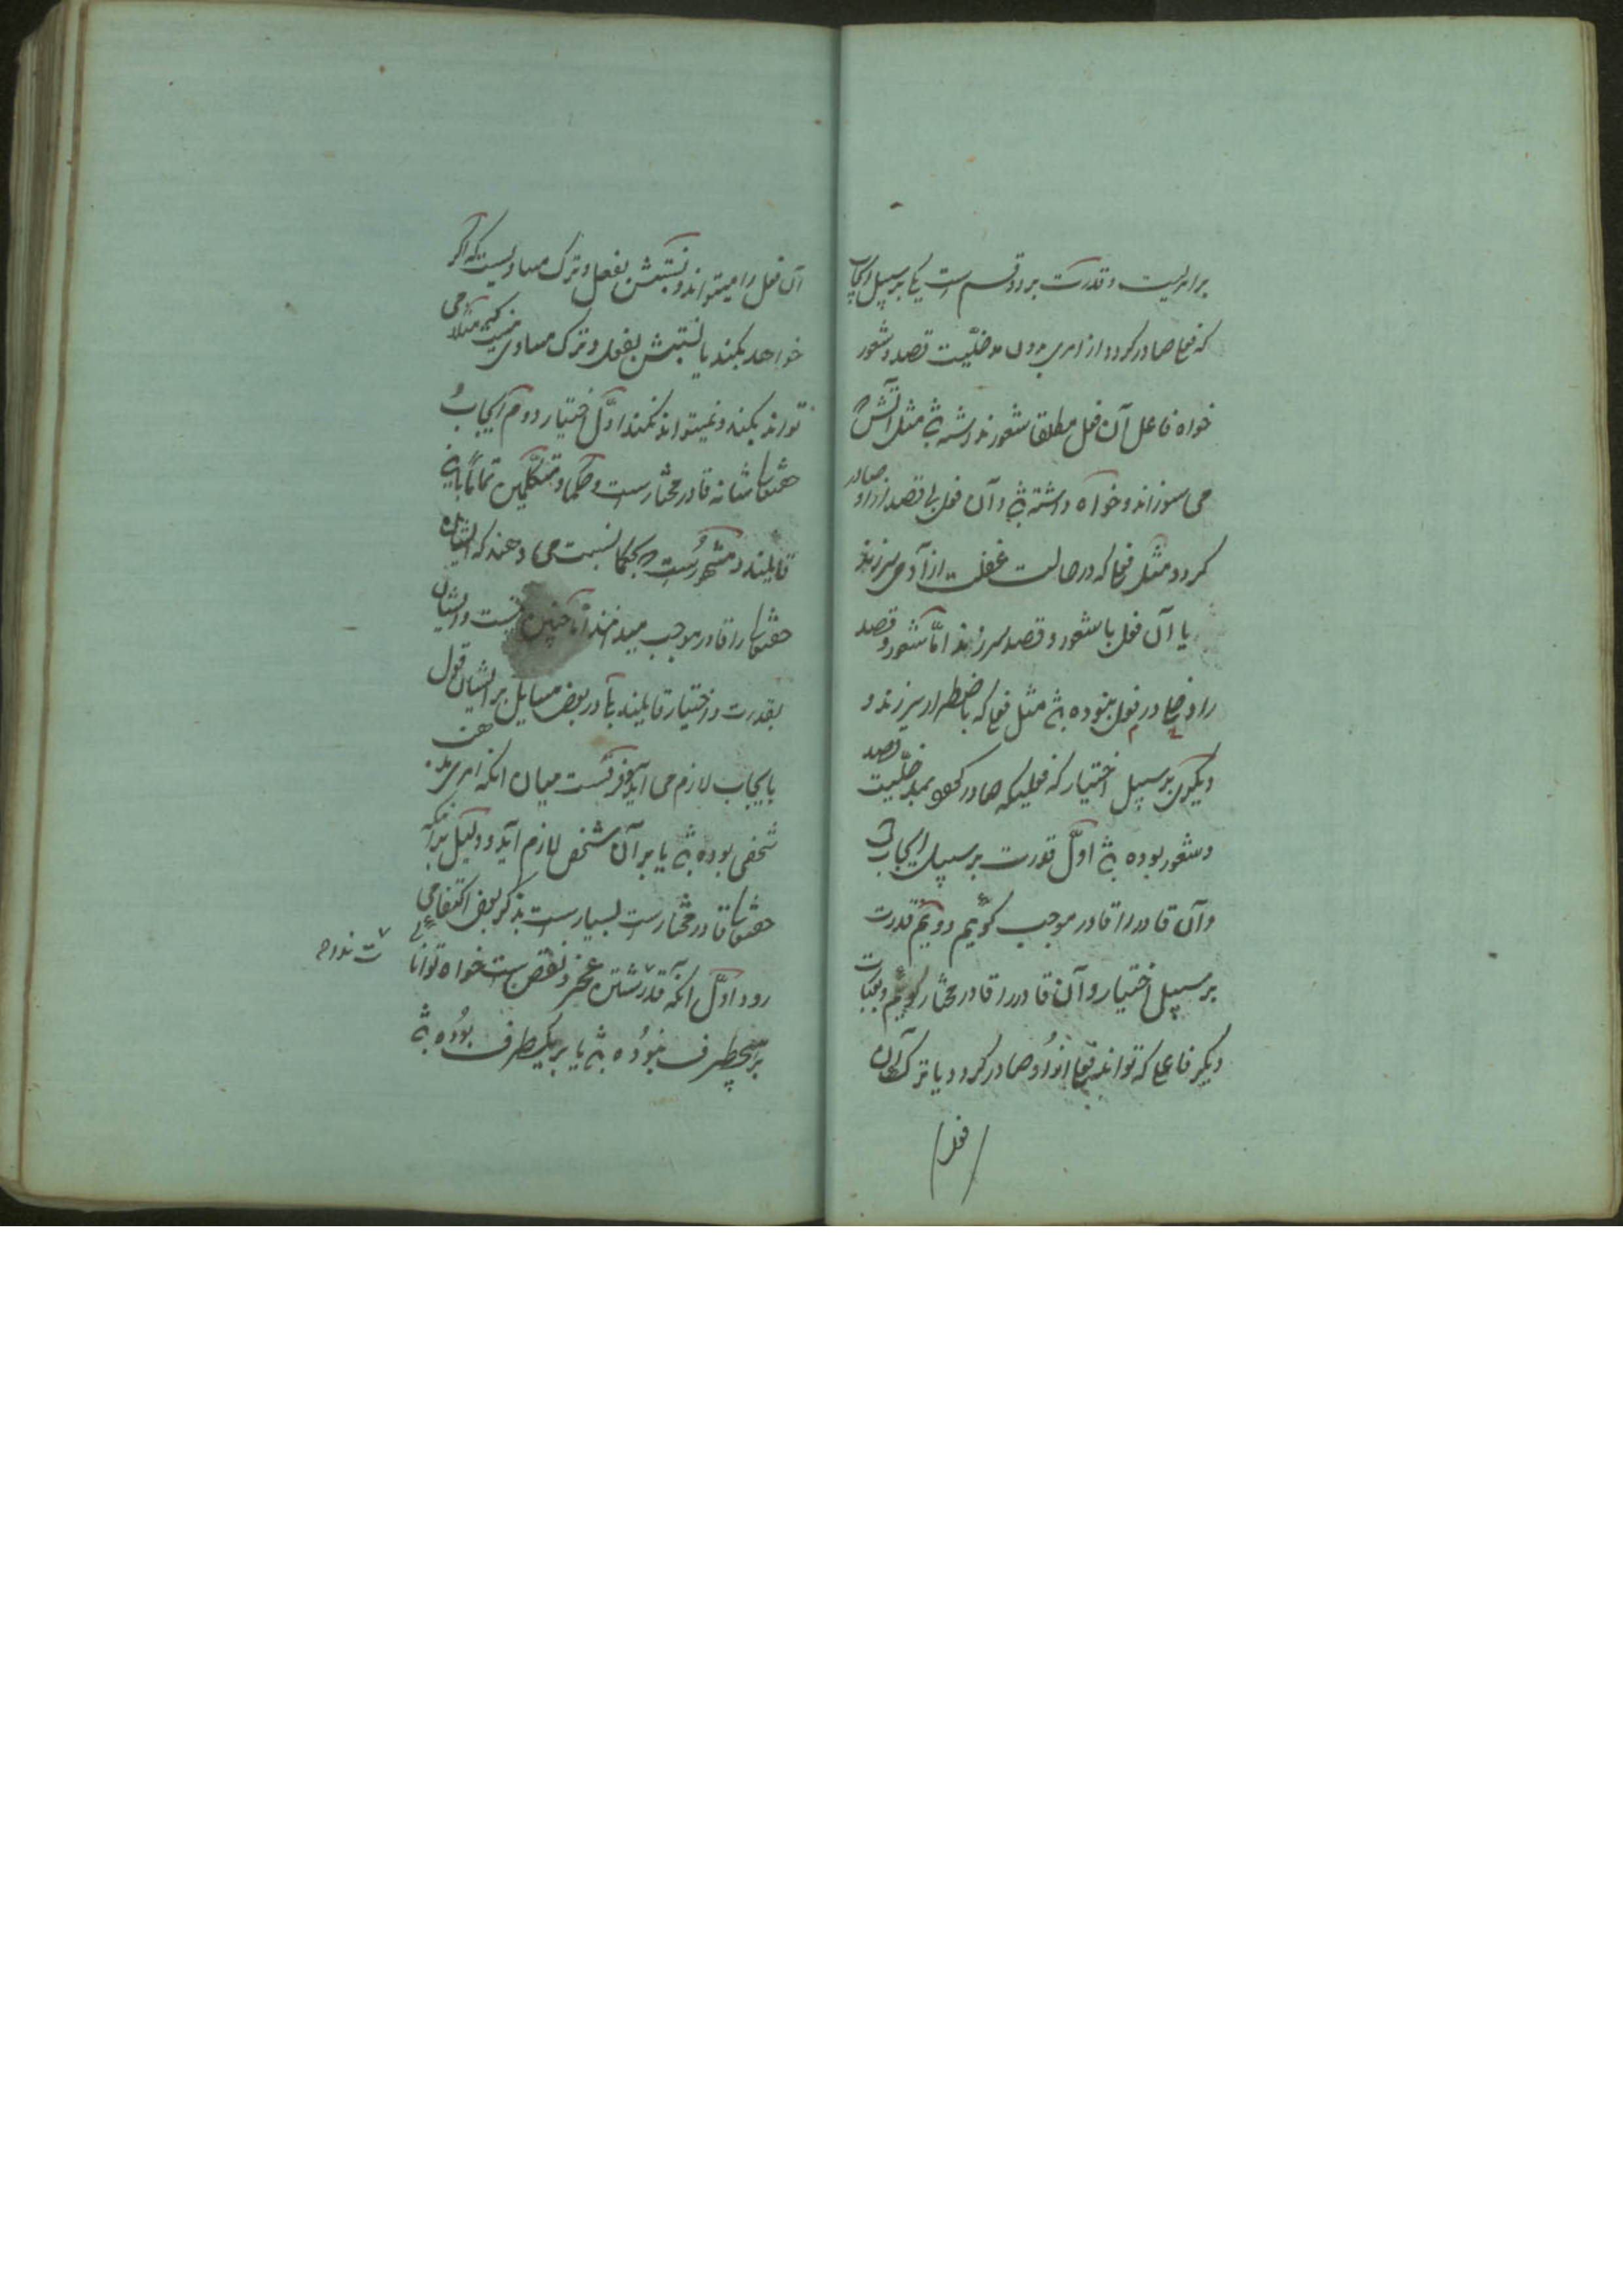 برامریست و قدرت بر دو قسم است یکی بر سبیل ایجاب
که فعلی صادر گردد از امری بدون مدخلیّت قصد و شعور
خواه فاعل آن فعل مطلقا شعور نداشته باشد مثل آتش که
می سوزاند و خواه داشته باشد و آن فعل بی قصد از او صادر
گردد مثل فعلی که در حالت غفلت از آدمی سرزند
یا آن فعل با شعور و قصد سرزند امّا شعور و قصد
را دخلی در فعل نبوده باشد مثل فعلی که باضطرار سرزند و
دیگری بر سبیل اختیار که فعلیکه صادر شود بمدخلّیت قصد
و شعور بوده باشد اوّل قدرت بر سبیل ایجاب است
و آن قادر را قادر موجب گوئیم دویّم قدرت
بر سبیل اختیار و آن قادر را قادر مختار گوئیم و بعبارت
دیگر فاعلی که تواند فعلی از او صادر گردد یا ترک آن
فعل
آن فعل را میتواند و نسبتش بفعل و ترک مساویست که اگر
خواهد بکند یا نسبتش بفعل و ترک مساوی نیست که مثلا می
تواند بکند و نمیتواند نکند اوّل اختیار دوم ایجاب
حقتعالی شانه قادر مختار است و حکما و متکلّمین تماماً باین
قایلند و مشهور است که بحکما نسبت می دهند که ایشان
حقتعالی را قادر موجب میدانند امّا چنین نیست و ایشان
بقدرت و اختیار قایلند امّا در بعض مسایل بر ایشان قول
بایجاب لازم می آید و فرقست میان انکه امری مذهب
شخصی بوده باشد یا بر آن شخص لازم آید و دلیل بر آنکه
حقتعالی قادر مختار است بسیار است بذکر بعض اکتفا می
رود اوّل انکه قدرت نداشتن عجز و نقص است خواه توانائی
بر هیچطرف نبوده باشد یا بر یکطرف بوده باشد
ت ندا